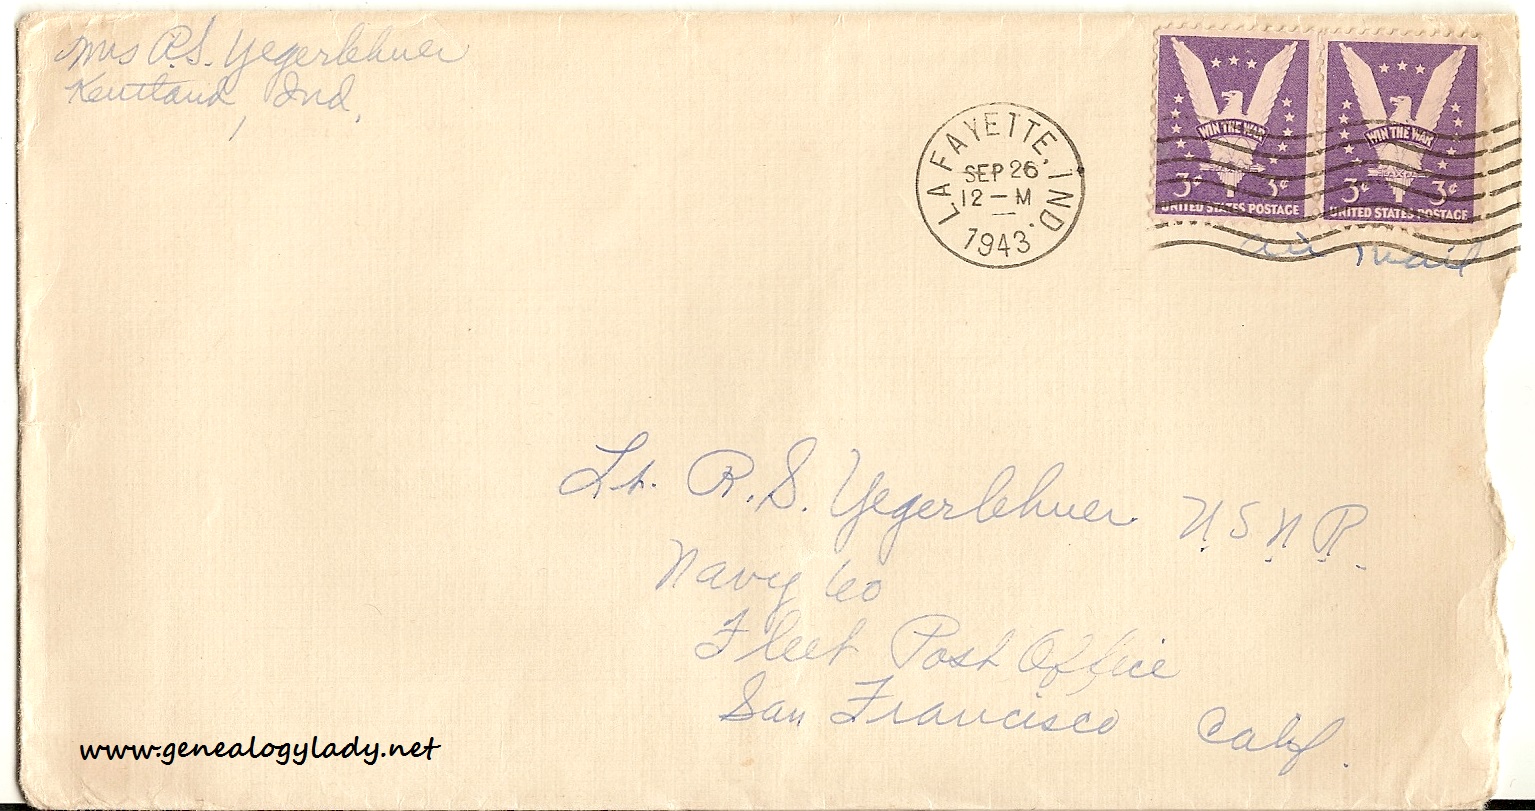 Mrs R.S. Yegerlehner
Kentland, Ind.
LAFAYETTE, IND.
SEP 26
12 – M
1943
WIN THE WAR
3¢ 3¢
UNITED STATES POSTAGE
WIN THE WAR
3¢ 3¢
UNITED STATES POSTAGE
air mail
Lt. R.S. Yegerlehner U.S.N.R.
Navy 60
Fleet Post Office
San Francisco Calif.
www.genealogylady.net